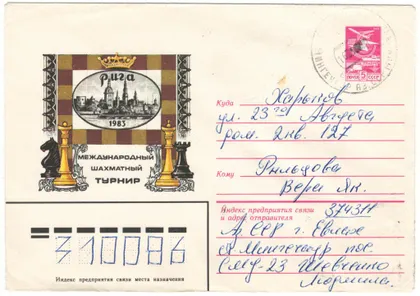 рига
1983
МЕЖДУНАРОДНЫЙ
ШАХМАТНЫЙ
ТУРНИР
ПОЧТА СССР
Куда Харьков
ул. 23го Августа
дом. 2 кв. 127
Кому Рыльцова
Вера Як.
Индекс предприятия связи
и адрес отправителя
374311
Ар. ССР г.
пос.
СМУ-23 Шевченко
310086
Индекс предприятия связи места назначения